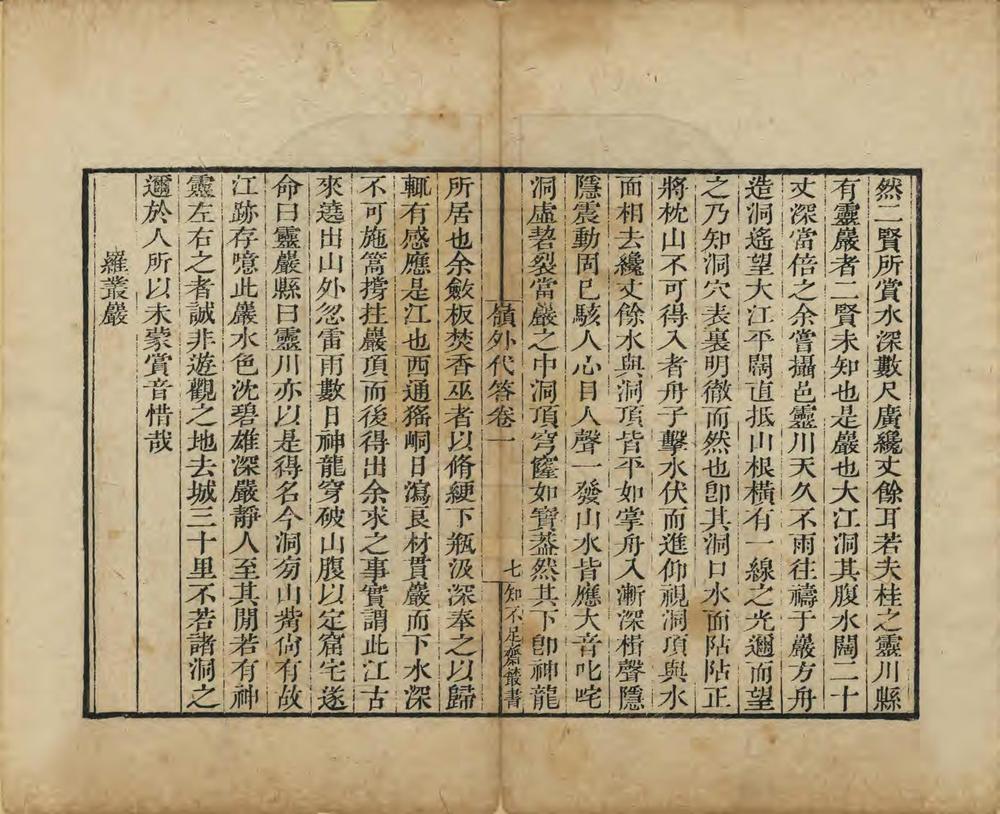 然二賢所賞水深數尺廣纔丈餘耳若夫桂之靈川縣
有靈巖者二賢未知也是巖也大江洞其腹水闊二十
丈深當倍之余嘗攝邑靈川天久不雨往禱于巖方舟
造洞遙望大江平闊直抵山根橫有一線之光邇而望
之乃知洞穴表裏明徹而然也卽其洞口水面阽阽正
將枕山不可得入者舟子擊水伏而進仰視洞頂與水
面相去纔丈餘水與洞頂皆平如掌舟入漸深楫聲隱
隱震動固已駭人心目人聲一發山水皆應大音叱咤
洞虛䂮裂當巖之中洞頂穹窿如寶葢然其下卽神龍
嶺外代答卷一 七 知不足齋叢書
所居也余斂板焚香巫者以脩綆下瓶汲深奉之以歸
輒有感應是江也西通猺峒日瀉良材貫巖而下水深
不可施篙撐拄巖頂而後得出余求之事實謂此江古
來遶出山外忽雷雨數日神龍穿破山腹以定窟宅遂
命曰靈巖縣曰靈川亦以是得名今洞旁山觜尙有故
江跡存噫此巖水色沈碧雄深嚴靜人至其閒若有神
靈左右之者誠非遊觀之地去城三十里不若諸洞之
邇於人所以未蒙賞音惜哉
羅叢巖